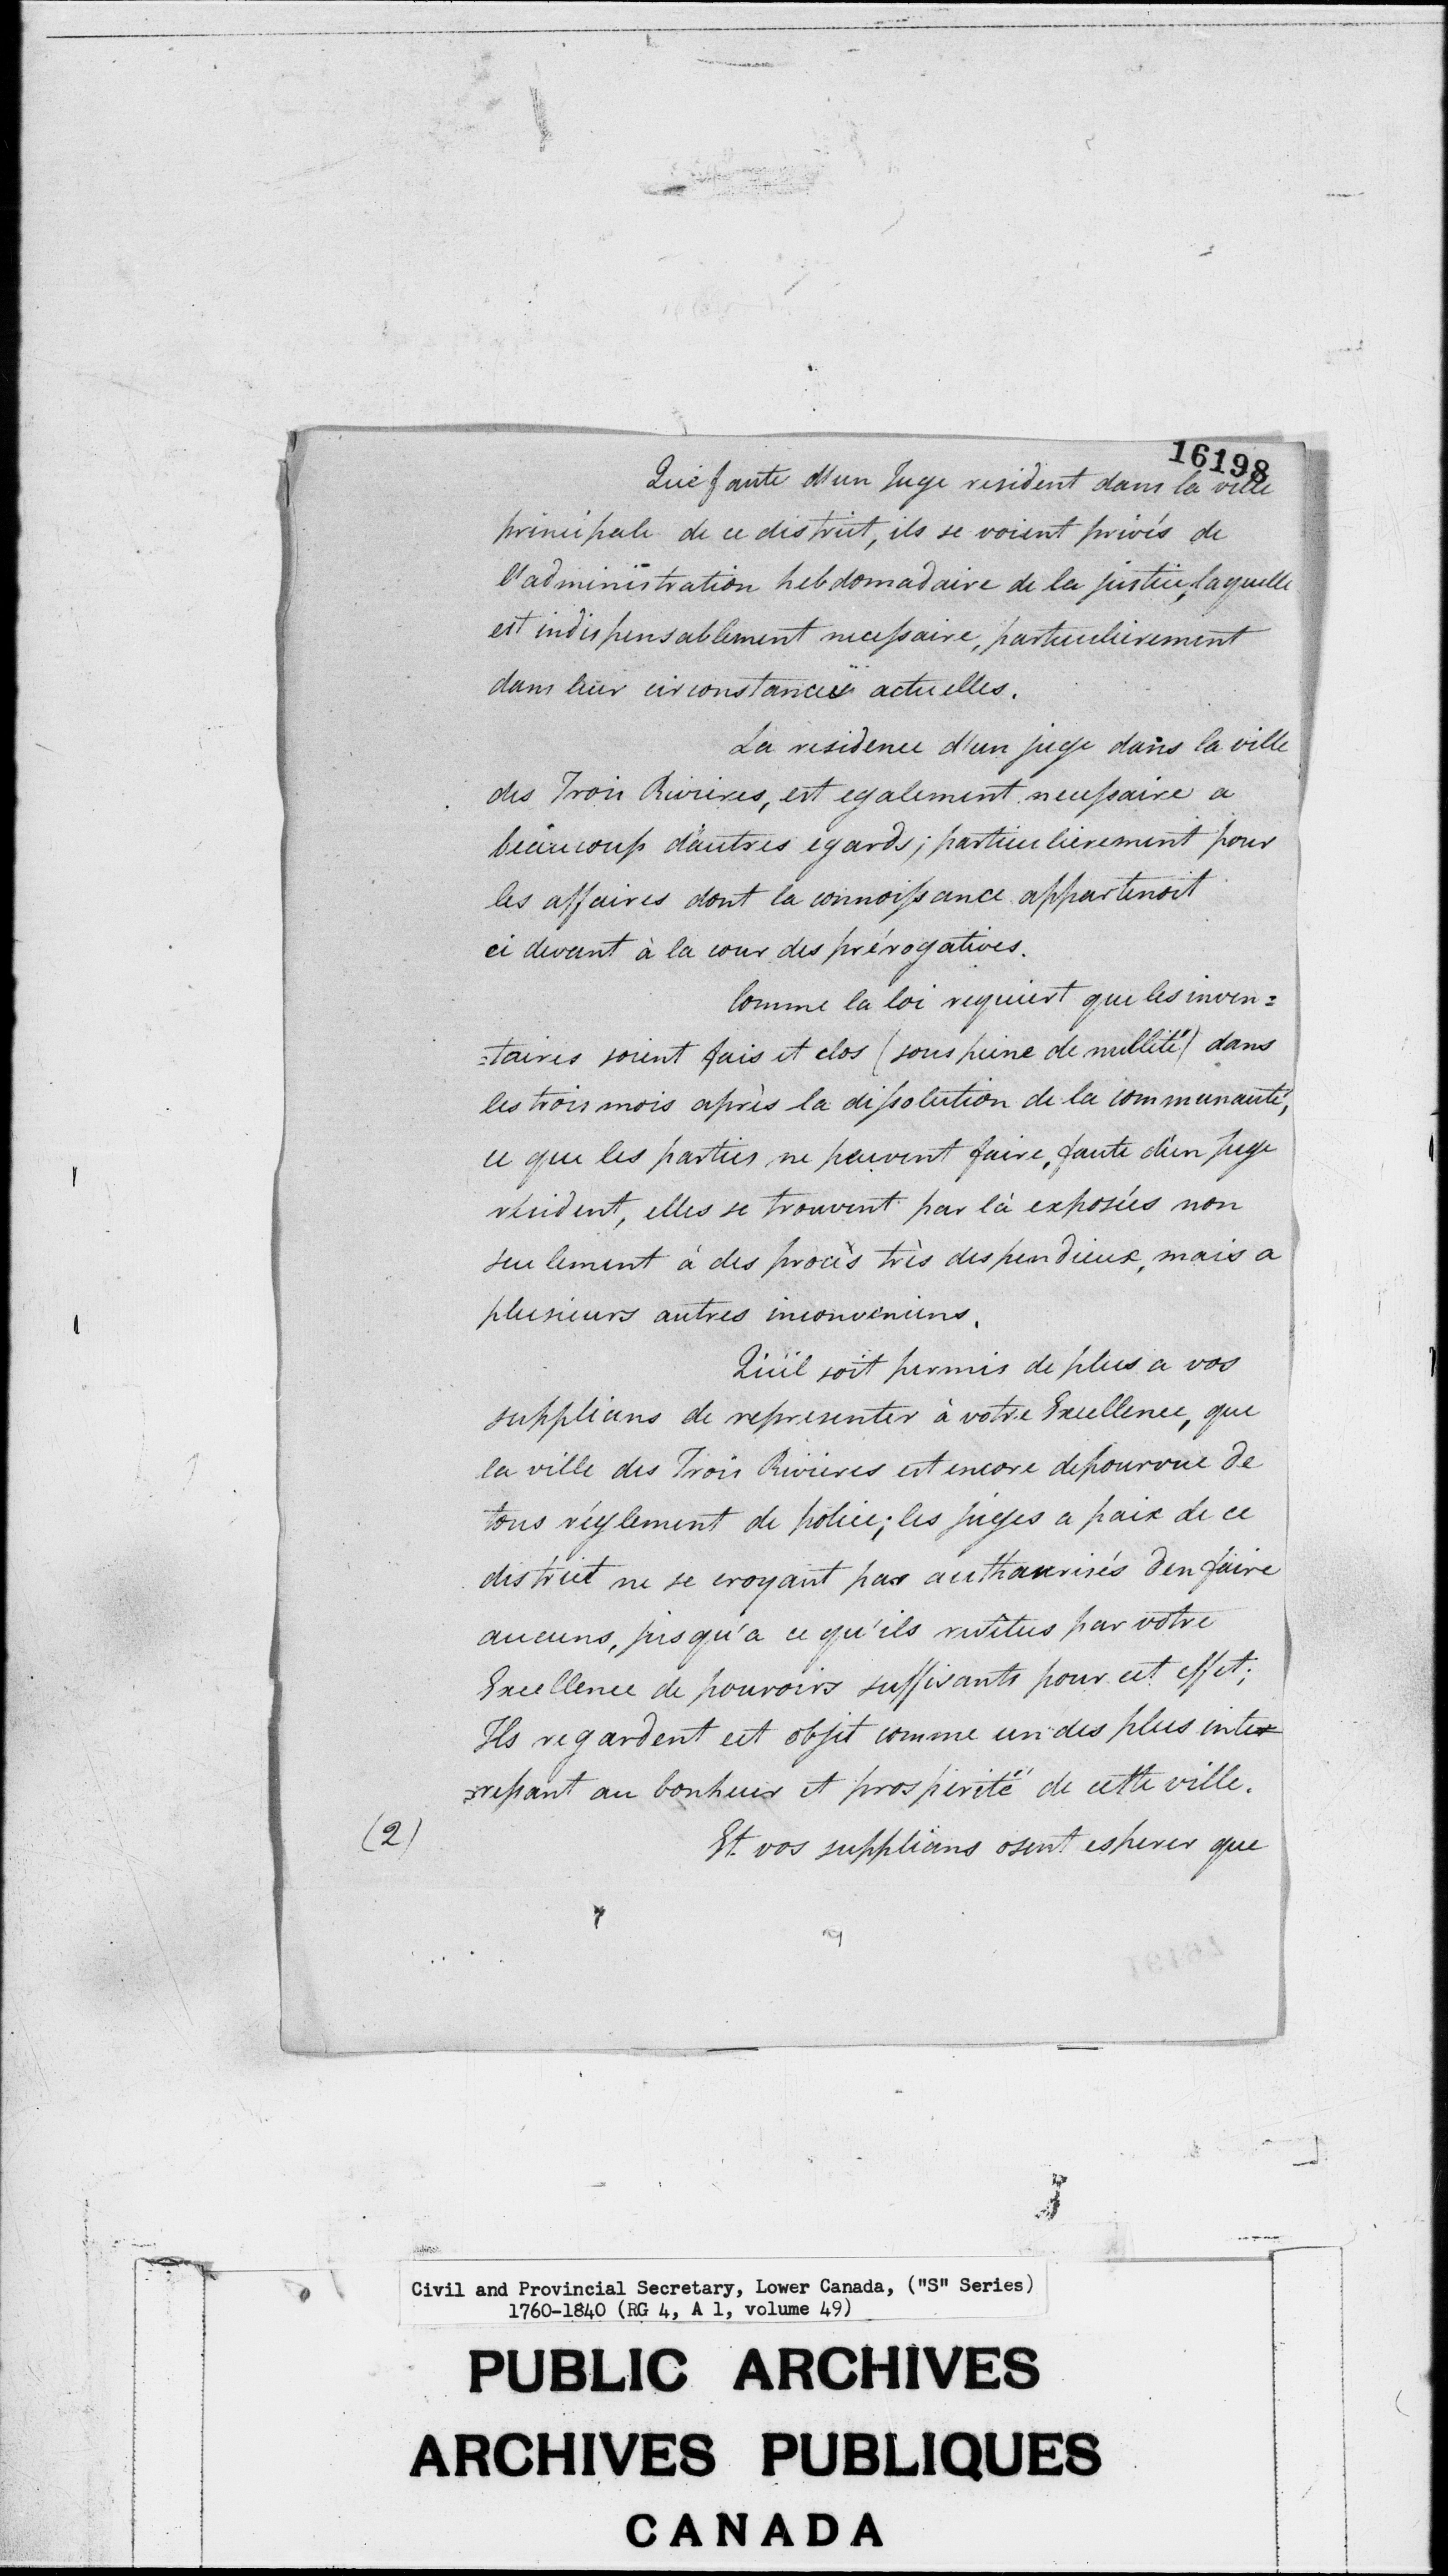 16198
Que faute d'un Juge resident dans la ville
principale de ce district, ils se voient privés de
l'administration hebdomadaire de la justice, laquelle
est indispensablement necessaire, particulierement
dans leur circonstances actuelles.
La residence d'un juge dans la ville
des Trois Rivieres, est egalement necessaire a
beaucoup d'autres egards; particulierement pour
les affaires dont la connoissance appartenoit
ci devant à la cour des prérogatives.
Comme la loi requiert que les inven=
=taires soient fais et clos (sous peine de nullité) dans
les trois mois après la dissolution de la communauté,
ce que les parties ne peuvent faire, faute d'un juge
résident, elles se trouvent par là exposées non
seulement à des procès très despendieux, mais a
plusieurs autres inconveniens.
Qu'il soit permis de plus a vos
supplians de representer à votre Excellence, que
la ville des Trois Rivieres est encore depourvue de
tous réglement de police; les juges a paix de ce
district ne se croyant pas authaurisés d'en faire
aucuns, jusqu'a ce qu'ils revêtus par votre
Excellence de pouvoirs suffisants pour cet effet;
Ils regardent cet objet comme un des plus inte=
=ressant au bonheur et prospérité de cette ville.
(2)
Et vos supplians osent esperer que
Civil and Provincial Secretary, Lower Canada, ("S" Series)
1760-1840 (RG 4, A 1, volume 49)
PUBLIC ARCHIVES
ARCHIVES PUBLIQUES
CANADA